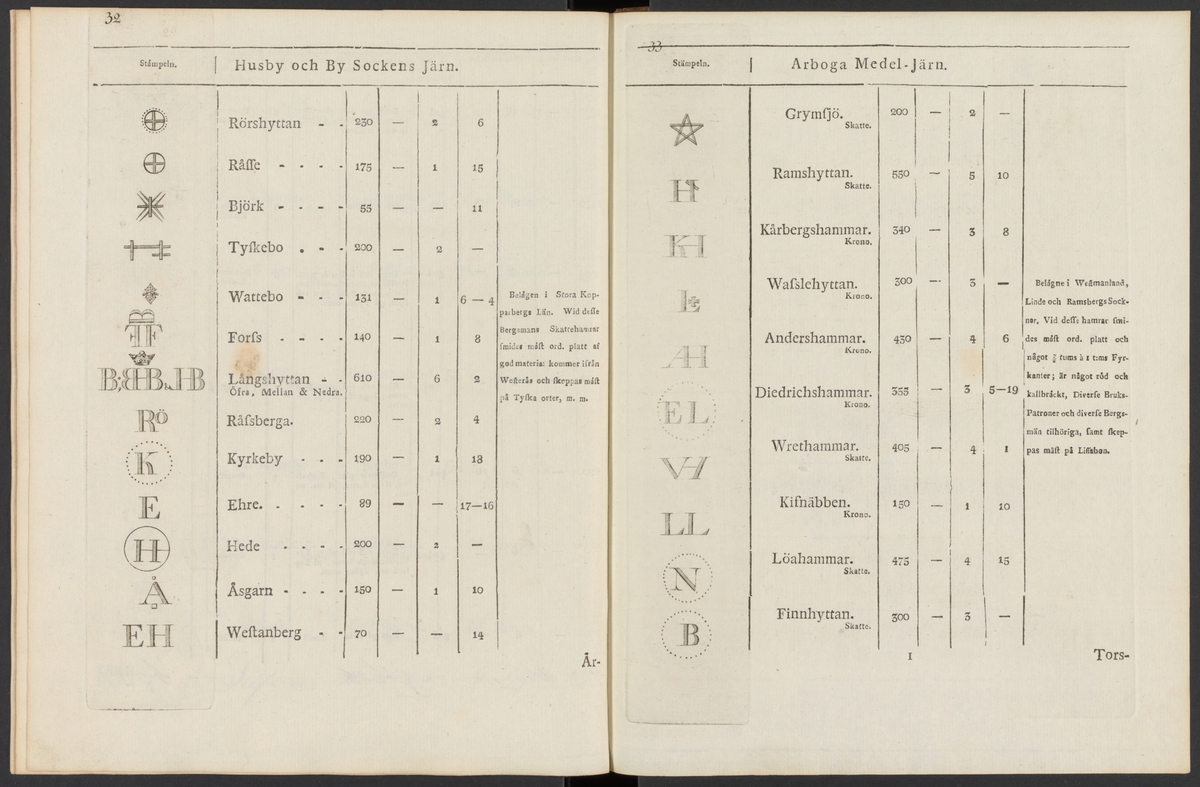 32
Stämpeln. Husby och By Sockens Järn.
Rörshyttan - - 230 — 2 6
Råſſe - - - - 175 — 1 15
Björk - - - - 55 — — 11
Tyſkebo - - - 200 — 2 —
Wattebo - - - 131 — 1 6—4
Forſs - - - 140 — 1 8
B;BB.HB Långshyttan - - 610 — 6 2
Öfra, Mellan & Nedra.
RÖ Råſsberga. 220 — 2 4
K Kyrkeby - - - 190 — 1 18
E Ehre. - - - - 89 — — 17—16
H Hede - - - - 200 — 2 —
Å Åsgarn - - - - 150 — 1 10
EH Weſtanberg - - 70 — — 14
Belägen i Stora Kop-
parbergs Län. Wid deſſe
Bergsmans Skattehamrar
ſmides mäſt ord. platt af
god materia: kommer ifrån
Weſterås och ſkeppas mäſt
på Tyſka orter, m. m.
År-
33
Stämpeln. Arboga Medel-Järn.
Grymſjö. 200 — 2 —
Skatte.
H Ramshyttan. 550 — 5 10
Skatte.
KH Kårbergshammar. 340 — 3 8
Krono.
Waſslehyttan. 300 — 3 —
Krono.
AH Andershammar. 430 — 4 6
Krono.
EL Diedrichshammar. 355 — 3 5—19
Krono.
VH Wrethammar. 405 — 4 1
Skatte.
LL Kiſnäbben. 150 — 1 10
Krono.
N Löahammar. 475 — 4 15
Skatte.
B Finnhyttan. 300 — 3 —
Skatte.
Belägne i Weſtmanland,
Linde och Ramsbergs Sock-
nar, Vid deſſe hamrar ſmi-
des mäſt ord. platt och
något tums à 1 tums Fyr-
kanter; är något röd och
kallbräckt, Diverſe Bruks-
Patroner och diverſe Bergs-
män tilhöriga, ſamt ſkep-
pas mäſt på Liſſabon.
I Tors-